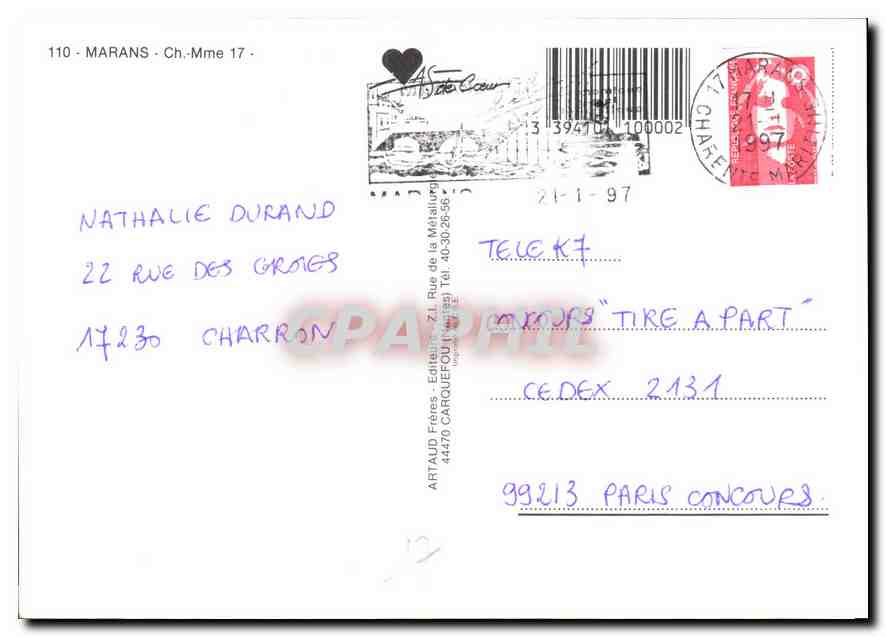 110 - MARANS - Ch.-Mme 17 -
3 394101 100002
MARANS
21-1-97
17 MARANS
CHARENTE MARITIME
REPUBLIQUE FRANÇAISE
LA POSTE
NATHALIE DURAND
22 RUE DES GROIES
17230 CHARRON
ARTAUD Frères - Editeurs - Z.I. Rue de la Métallurgie
44470 CARQUEFOU (Nantes) Tél. 40-30-26-56
CPAPHIL
TELE K7
CONCOURS "TIRE A PART"
CEDEX 2131
99213 PARIS CONCOURS.
17